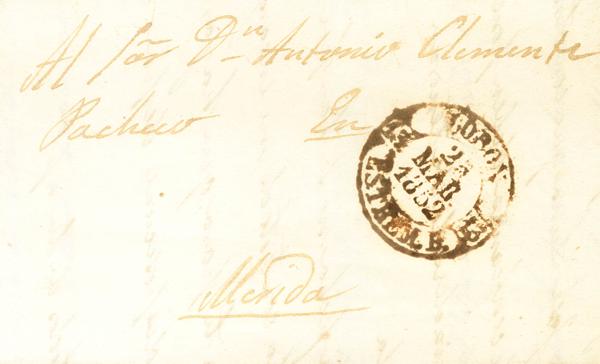 Al Sōr Dn Antonio Clemente
Pacheco En
25
MAR
1852
EXTREM. B.
Merida